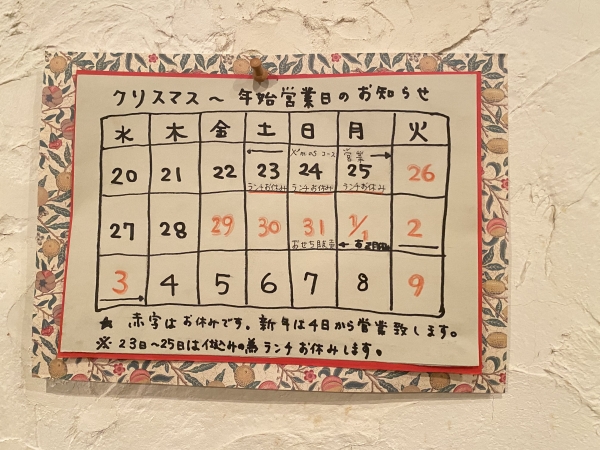 クリスマス〜年始営業日のお知らせ
水 木 金 土 日 月 火
X'mas コース 営業
20 21 22 23 24 25 26
ランチお休み ランチお休み ランチお休み
27 28 29 30 31 1/1 2
おせち販売 お正月休
3 4 5 6 7 8 9
★ 赤字はお休みです。新年は4日から営業致します。
※ 23日〜25日は仕込みの為ランチお休みします。